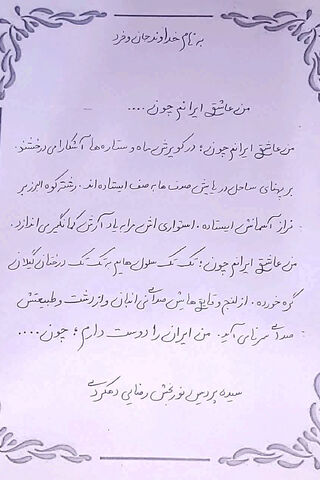 به نام خداوند جان و خرد
من عاشق ایرانم چون ....
من عاشق ایرانم چون؛ در کویرش ماه و ستاره ها آشکارا می درخشند.
بر پهنای ساحل دریایش صدف ها به صف ایستاده اند. رشته کوه البرز بر
فراز آسمانش ایستاده. استواری اش مرا به یاد آرش کمانگیر می اندازد.
من عاشق ایرانم چون؛ تک تک سلول هایم به تک تک درختان گیلان
گره خورده. از لنج و قایق هایش صدای و از رشت و طبیعتش
صدای می آید. من ایران را دوست دارم؛ چون....
سیده پردیس نوربخش رضایی دهکردی